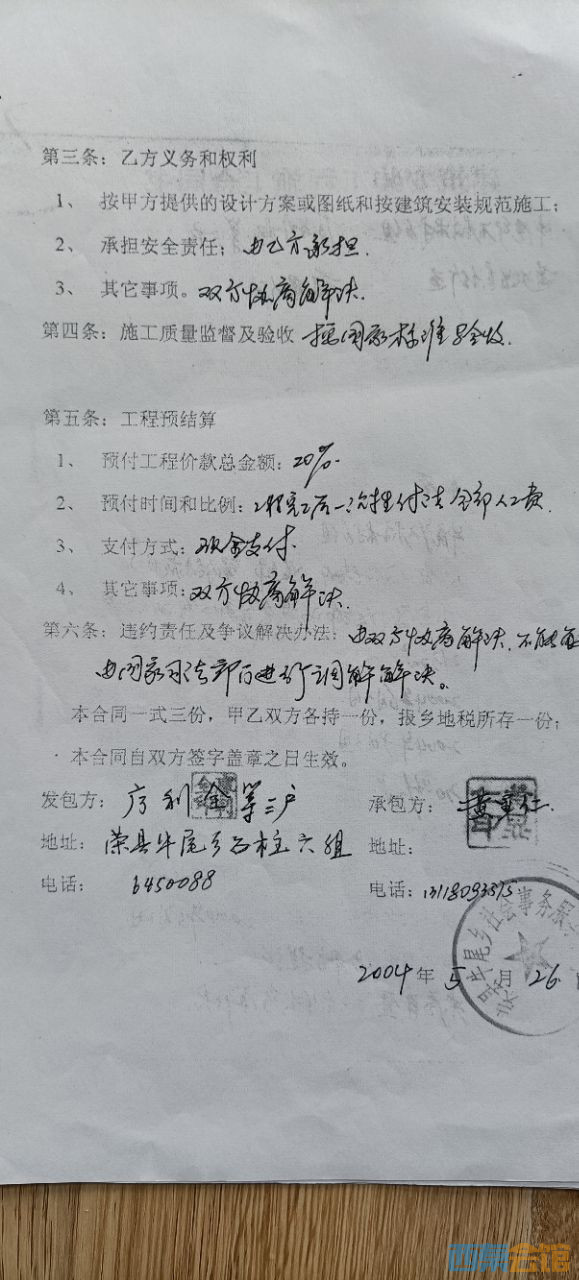 第三条：乙方义务和权利
1、 按甲方提供的设计方案或图纸和按建筑安装规范施工；
2、 承担安全责任；由乙方承担.
3、 其它事项。双方协商解决.
第四条：施工质量监督及验收 按国家标准验收.
第五条：工程预结算
1、 预付工程价款总金额：20%.
2、 预付时间和比例：工程完工后一次性付清全部人工费.
3、 支付方式：现金支付.
4、 其它事项：双方协商解决.
第六条：违约责任及争议解决办法：由双方协商解决.不能
由国家司法部门进行调解解决。
本合同一式三份，甲乙双方各持一份，报乡地税所存一份；
本合同自双方签字盖章之日生效。
发包方： 利金等三户
承包方：
地址： 荣县牛尾乡石柱六组
地址：
电话： 6450088
电话：
牛尾乡社会事务服
2004年5月26
西祠会馆